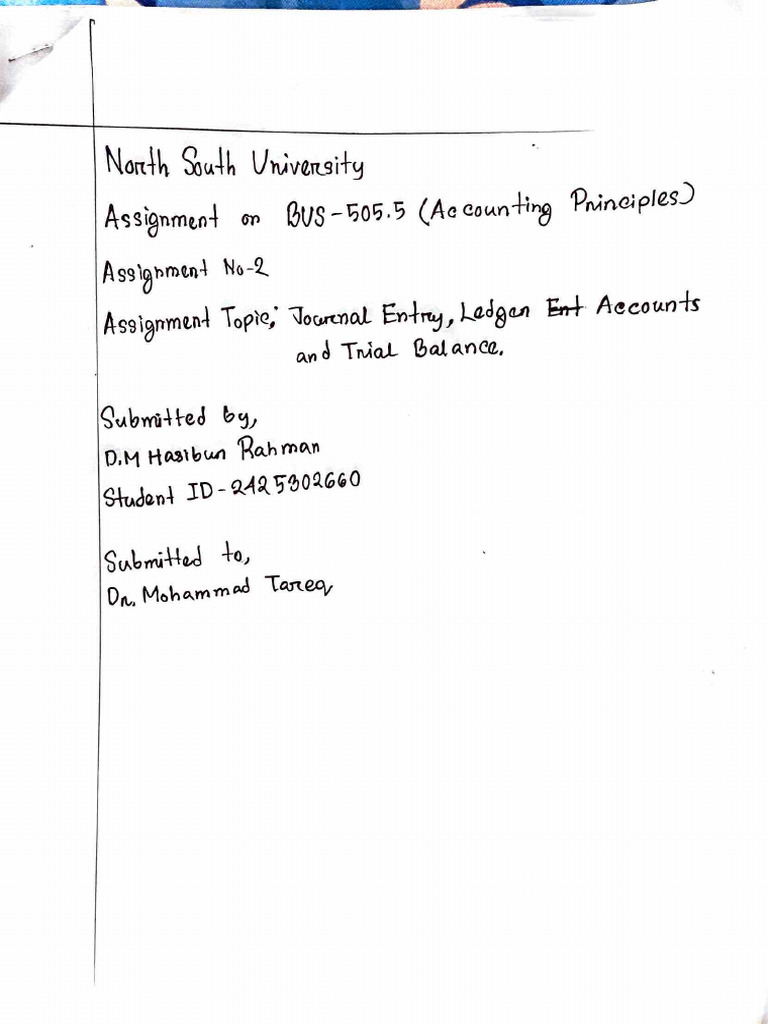 North South University
Assignment on BUS-505.5 (Accounting Principles)
Assignment No-2
Assignment Topic; Journal Entry, Ledger Ent Accounts
and Trial Balance.
Submitted by,
D.M Hasibur Rahman
Student ID-2425302660
Submitted to,
Dr. Mohammad Tareq